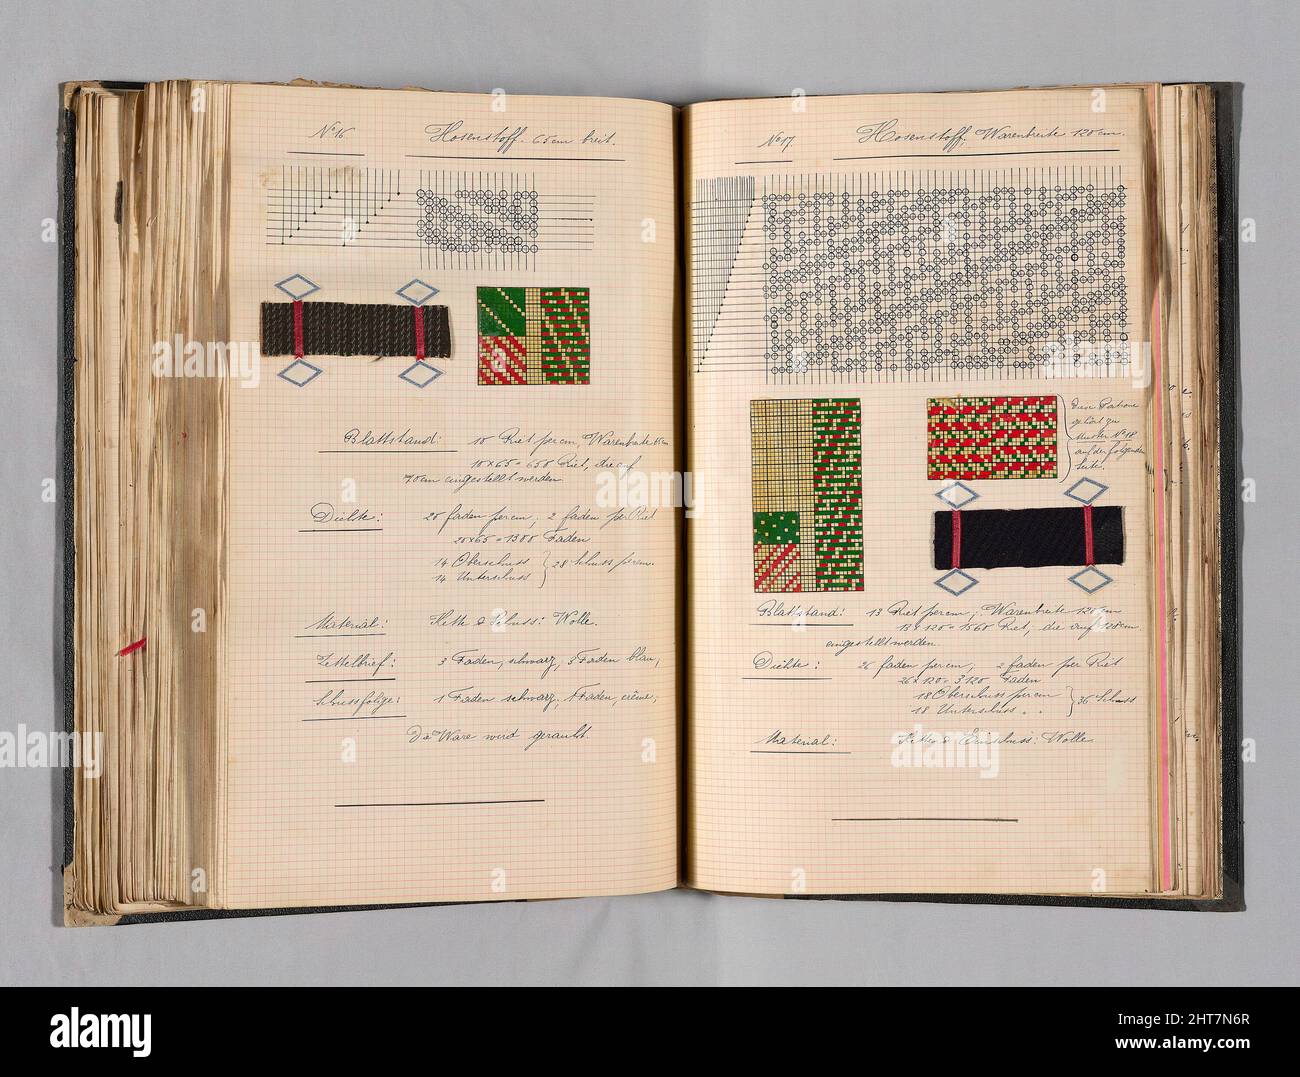 No 16
Hosenstoff. 65cm breit.
Blattstand: 10 Riet per cm, Warenbreite 65 cm
10×65 = 650 Riet, die auf
70 cm eingestellt werden
Dichte: 20 Faden per cm, 2 Faden per Riet
20×65 = 1300 Faden
14 Oberschuss } 28 Schuss per cm.
14 Unterschuss
Material: Kette & Schuss: Wolle.
Zettelbrief: 3 Faden, schwarz, 3 Faden blau,
Schussfolge: 1 Faden schwarz. 1 Faden, crème;
Die Ware wird geraubt.
No 17.
Hosenstoff, Warenbreite 120 cm.
Diese Patrone
gehört zu
Muster No 18
auf der folgenden
Seite.
Blattstand: 13 Riet per cm; Warenbreite 120 cm
13 × 120 = 1560 Riet, die auf 128 cm.
eingestellt werden.
Dichte: 26 Faden per cm, 2 Faden per Riet
26 × 120 = 3120 Faden
18 Oberschuss per cm } 36 Schuss
18 Unterschuss . .
Material: Kette & Einschuss: Wolle
alamy
alamy
www.alamy.com
Image ID: 2HT7N6R